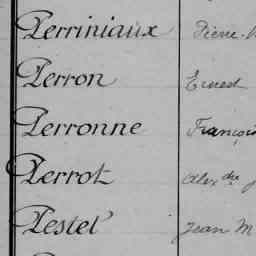 Perriniaux Pierre
Perron Ernest
Perronne François
Perrot Alexdre
Pestel Jean M